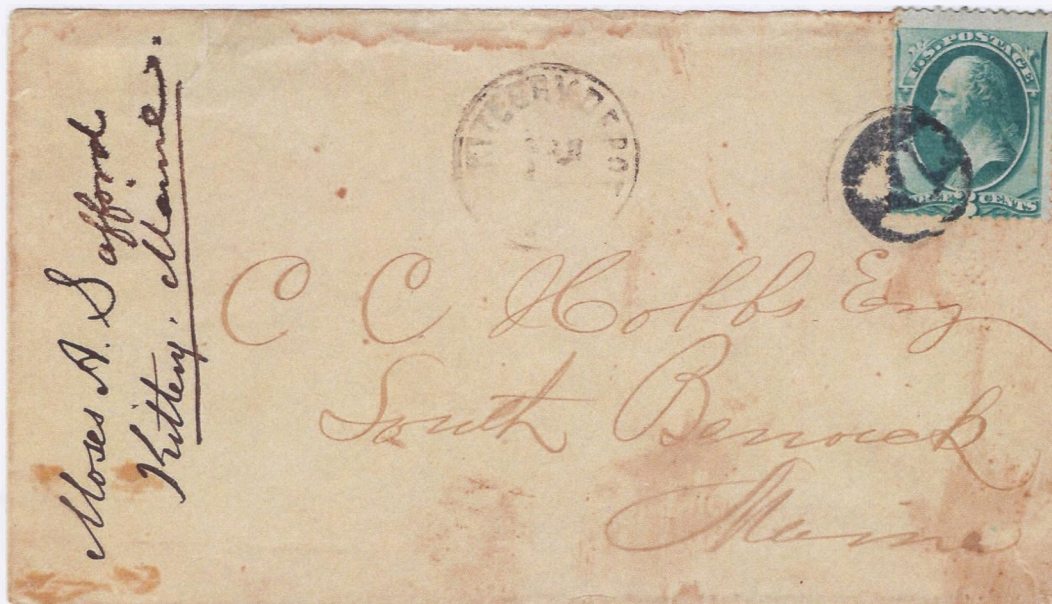 Moses A. Safford
Kittery. Maine.
KITTERY DEPOT
U.S. POSTAGE
THREE 3 CENTS
C C Hobbs Esq
South Berwick
Maine